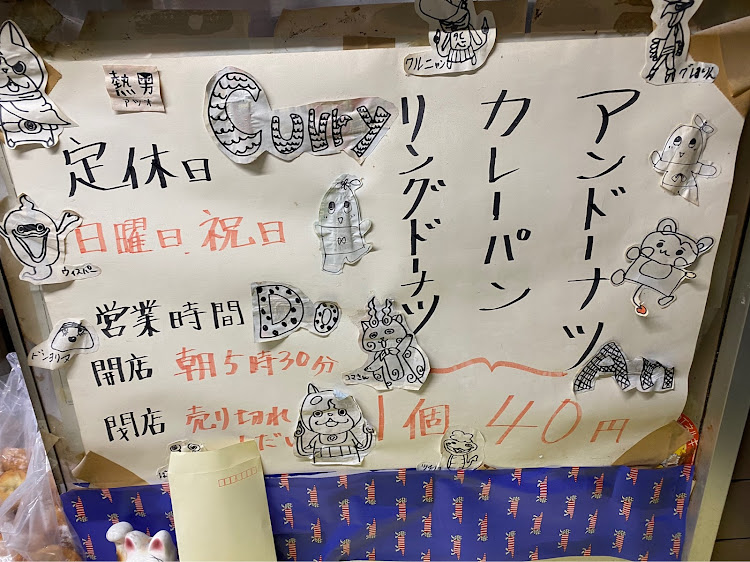 アンドーナツ
カレーパン
リングドーナツ
1個 40円
Curry
Do
An
熱男
アツオ
定休日
日曜日、祝日
営業時間
開店 朝5時30分
閉店 売り切れ
しだい
ワルニャン
ウィスパー
コマさん